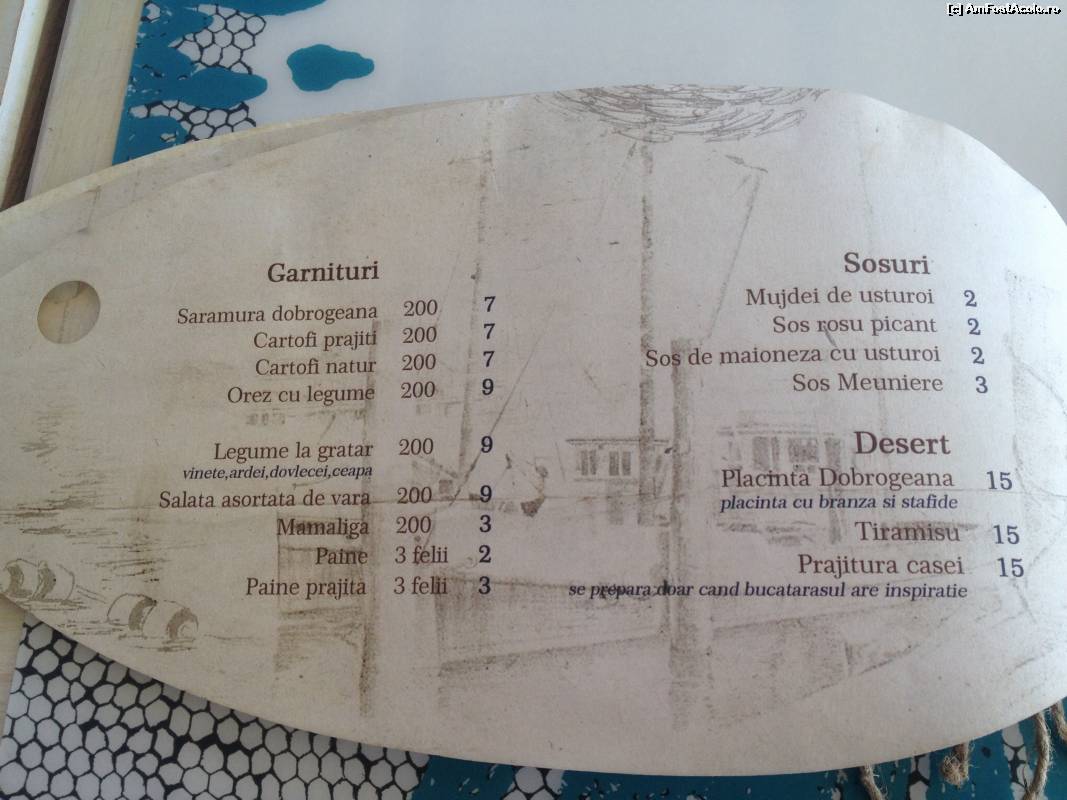 [c] AmFostAcolo.ro
Garnituri
Saramura dobrogeana 200 7
Cartofi prajiti 200 7
Cartofi natur 200 7
Orez cu legume 200 9
Legume la gratar 200 9
vinete,ardei,dovlecei,ceapa
Salata asortata de vara 200 9
Mamaliga 200 3
Paine 3 felii 2
Paine prajita 3 felii 3
Sosuri
Mujdei de usturoi 2
Sos rosu picant 2
Sos de maioneza cu usturoi 2
Sos Meuniere 3
Desert
Placinta Dobrogeana 15
placinta cu branza si stafide
Tiramisu 15
Prajitura casei 15
se prepara doar cand bucatarasul are inspiratie